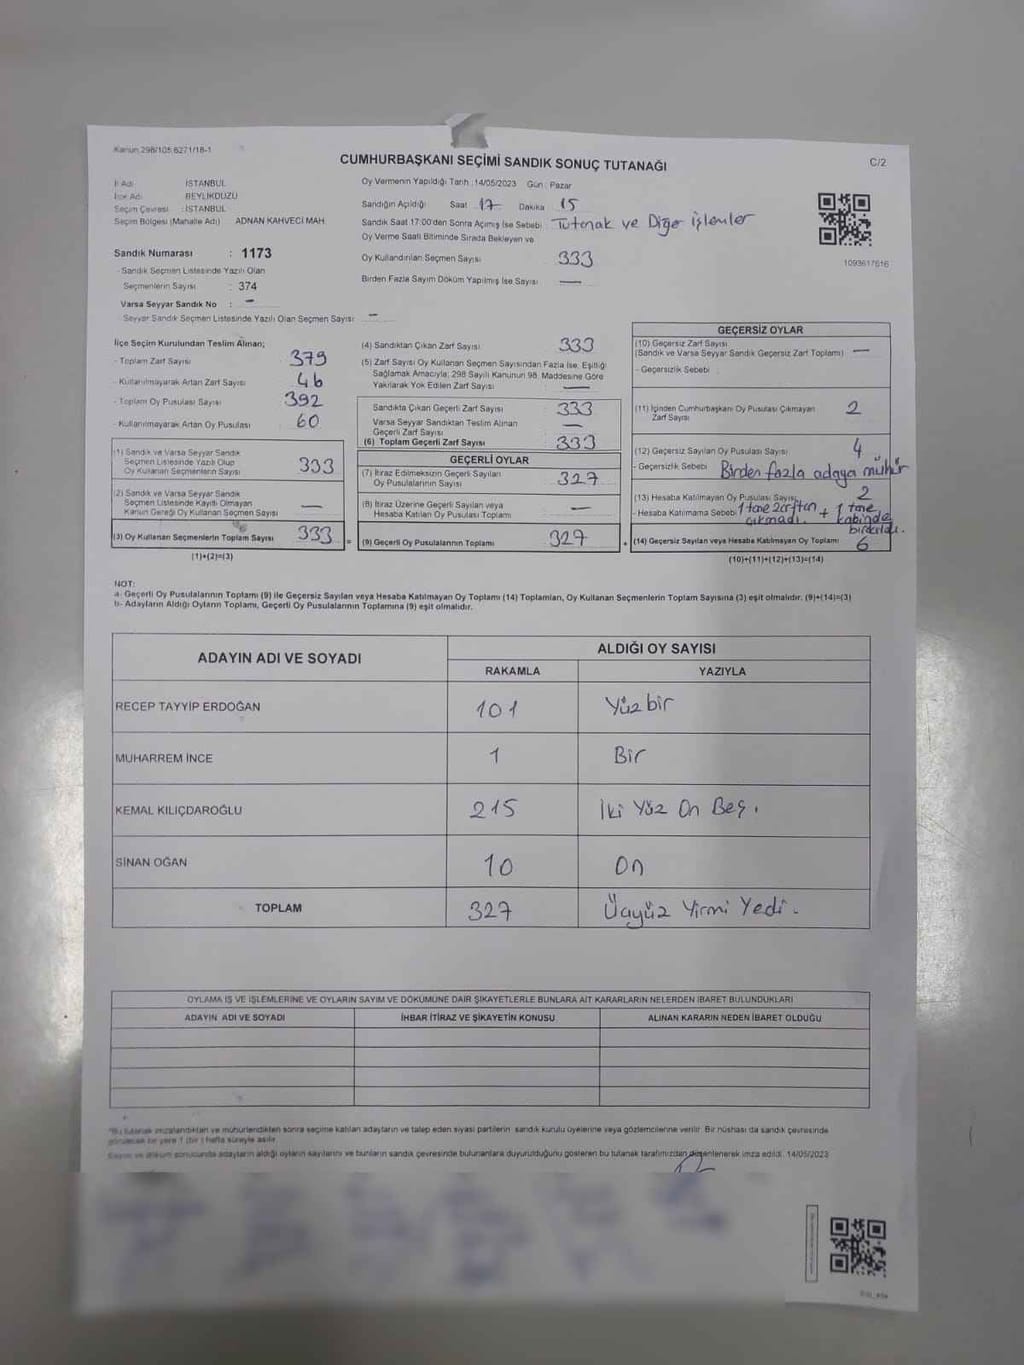 Kanun 298/105 6271/18-1
CUMHURBAŞKANI SEÇİMİ SANDIK SONUÇ TUTANAĞI
C/2
İl Adı : İSTANBUL
İlçe Adı : BEYLİKDÜZÜ
Seçim Çevresi : İSTANBUL
Seçim Bölgesi (Mahalle Adı) : ADNAN KAHVECİ MAH.
Sandık Numarası : 1173
- Sandık Seçmen Listesinde Yazılı Olan
Seçmenlerin Sayısı : 374
Varsa Seyyar Sandık No : -
- Seyyar Sandık Seçmen Listesinde Yazılı Olan Seçmen Sayısı : -
Oy Vermenin Yapıldığı Tarih : 14/05/2023 Gün : Pazar
Sandığın Açıldığı Saat 17 Dakika 15
Sandık Saat 17:00'den Sonra Açılmış İse Sebebi : Tutanak ve Diğer işlemler
Oy Verme Saati Bitiminde Sırada Bekleyen ve
Oy Kullandırılan Seçmen Sayısı 333
Birden Fazla Sayım Döküm Yapılmış İse Sayısı —
1093617616
İlçe Seçim Kurulundan Teslim Alınan;
- Toplam Zarf Sayısı 379
- Kullanılmayarak Artan Zarf Sayısı 46
- Toplam Oy Pusulası Sayısı 392
- Kullanılmayarak Artan Oy Pusulası 60
(1) Sandık ve Varsa Seyyar Sandık
Seçmen Listesinde Yazılı Olup
Oy Kullanan Seçmenlerin Sayısı 333
(2) Sandık ve Varsa Seyyar Sandık
Seçmen Listesinde Kayıtlı Olmayan
Kanun Gereği Oy Kullanan Seçmen Sayısı —
(3) Oy Kullanan Seçmenlerin Toplam Sayısı 333 =
(1)+(2)=(3)
(4) Sandıktan Çıkan Zarf Sayısı 333
(5) Zarf Sayısı Oy Kullanan Seçmen Sayısından Fazla İse, Eşitliği
Sağlamak Amacıyla; 298 Sayılı Kanunun 98. Maddesine Göre
Yakılarak Yok Edilen Zarf Sayısı —
Sandıkta Çıkan Geçerli Zarf Sayısı 333
Varsa Seyyar Sandıktan Teslim Alınan
Geçerli Zarf Sayısı —
(6) Toplam Geçerli Zarf Sayısı 333
GEÇERLİ OYLAR
(7) İtiraz Edilmeksizin Geçerli Sayılan
Oy Pusulalarının Sayısı 327
(8) İtiraz Üzerine Geçerli Sayılan veya
Hesaba Katılan Oy Pusulası Toplamı —
(9) Geçerli Oy Pusulalarının Toplamı 327 +
GEÇERSİZ OYLAR
(10) Geçersiz Zarf Sayısı
(Sandık ve Varsa Seyyar Sandık Geçersiz Zarf Toplamı) —
- Geçersizlik Sebebi
(11) İçinden Cumhurbaşkanı Oy Pusulası Çıkmayan
Zarf Sayısı 2
(12) Geçersiz Sayılan Oy Pusulası Sayısı 4
- Geçersizlik Sebebi Birden fazla adaya mühür
(13) Hesaba Katılmayan Oy Pusulası Sayısı 2
- Hesaba Katılmama Sebebi 1 tane zarftan çıkmadı. + 1 tane kabinde bırakıldı.
(14) Geçersiz Sayılan veya Hesaba Katılmayan Oy Toplamı 6
(10)+(11)+(12)+(13)=(14)
NOT:
a- Geçerli Oy Pusulalarının Toplamı (9) ile Geçersiz Sayılan veya Hesaba Katılmayan Oy Toplamı (14) Toplamları, Oy Kullanan Seçmenlerin Toplam Sayısına (3) eşit olmalıdır. (9)+(14)=(3)
b- Adayların Aldığı Oyların Toplamı, Geçerli Oy Pusulalarının Toplamına (9) eşit olmalıdır.
ADAYIN ADI VE SOYADI
ALDIĞI OY SAYISI
RAKAMLA YAZIYLA
RECEP TAYYİP ERDOĞAN 101 Yüzbir
MUHARREM İNCE 1 Bir
KEMAL KILIÇDAROĞLU 215 İki Yüz On Beş.
SİNAN OĞAN 10 On
TOPLAM 327 Üçyüz Yirmi Yedi.
OYLAMA İŞ VE İŞLEMLERİNE VE OYLARIN SAYIM VE DÖKÜMÜNE DAİR ŞİKAYETLERLE BUNLARA AİT KARARLARIN NELERDEN İBARET BULUNDUKLARI
ADAYIN ADI VE SOYADI İHBAR İTİRAZ VE ŞİKAYETİN KONUSU ALINAN KARARIN NEDEN İBARET OLDUĞU
*Bu tutanak imzalandıktan ve mühürlendikten sonra seçime katılan adayların ve talep eden siyasi partilerin sandık kurulu üyelerine veya gözlemcilerine verilir. Bir nüshası da sandık çevresinde
görülecek bir yere 1 (bir) hafta süreyle asılır.
Sayım ve döküm sonucunda adayların aldığı oyların sayılarını ve bunların sandık çevresinde bulunanlara duyurulduğunu gösteren bu tutanak tarafımızdan düzenlenerek imza edildi. 14/05/2023